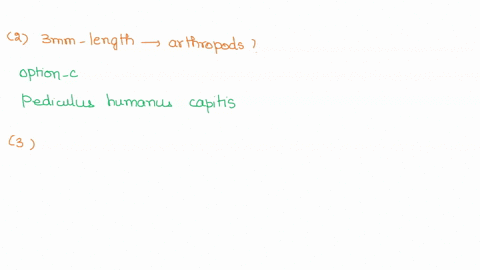 (2) 3mm-length → arthropods ?
option-c
Pediculus humanus capitis
(3)